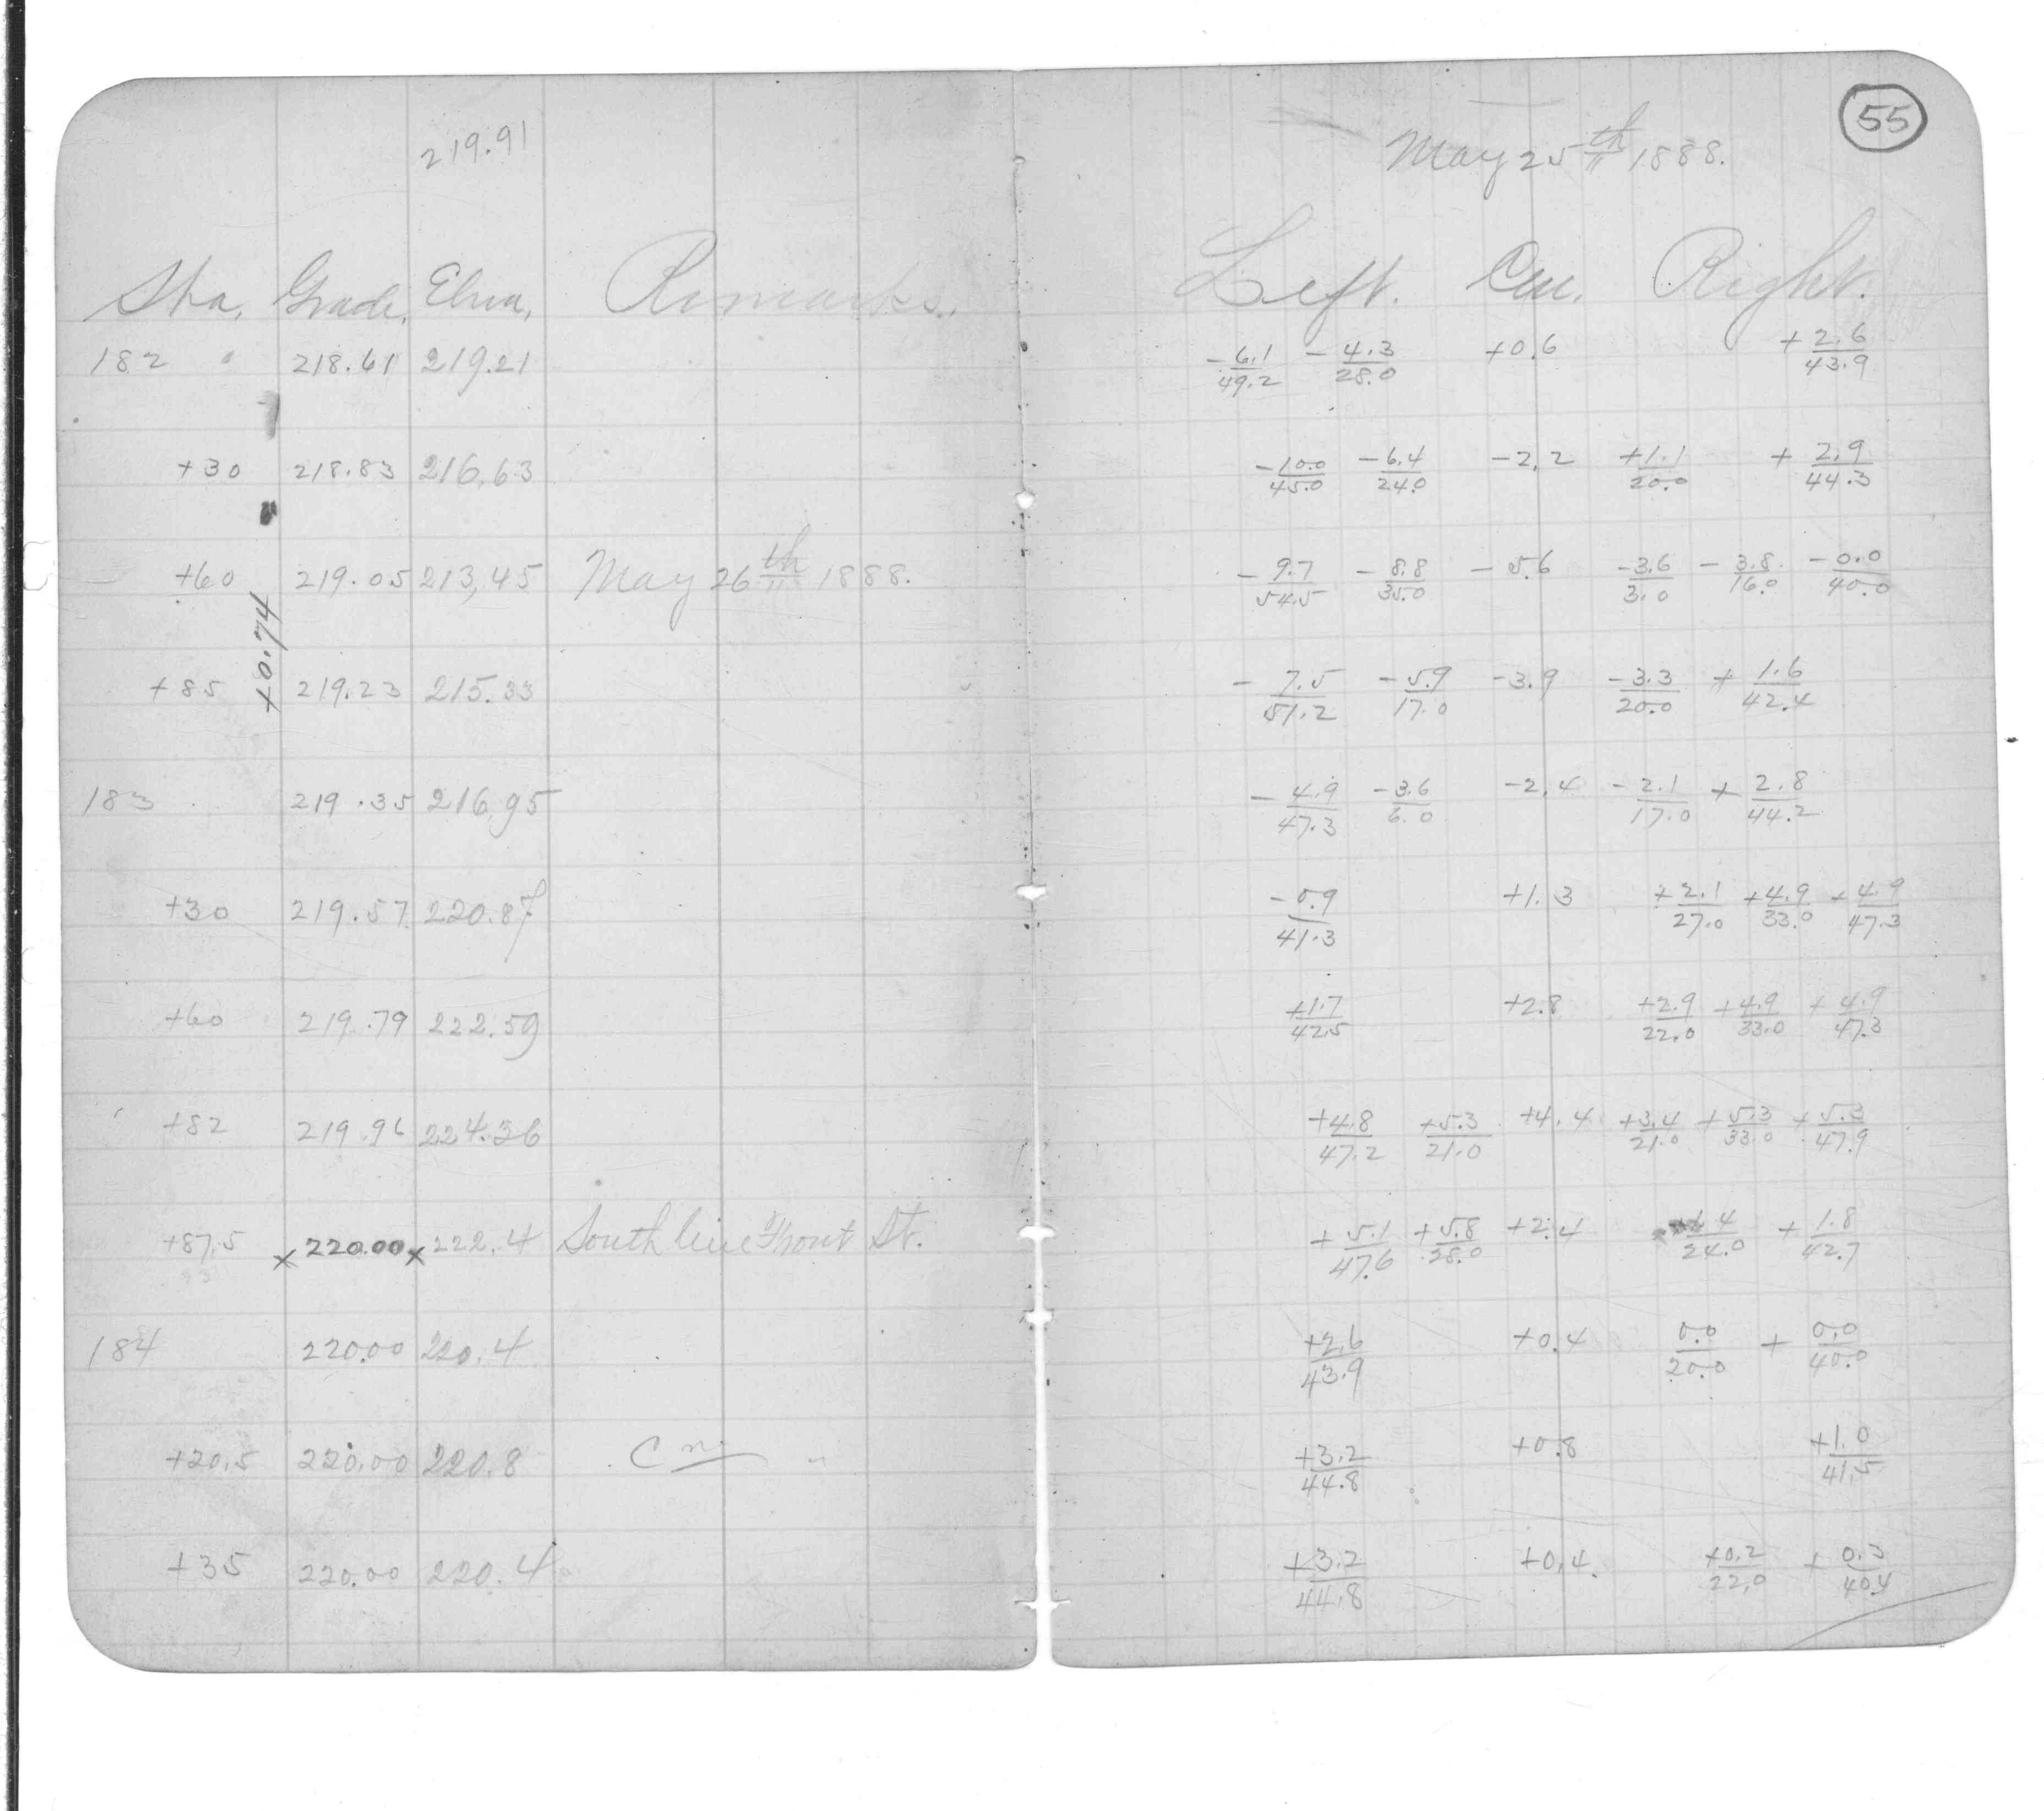 55
219.91 May 25th 1888.
Sta. Grade. Eleva. Remarks. Left. Cen. Right.
182 218.61 219.21 -6.1/49.2 -4.3/28.0 +0.6 +2.6/43.9
+30 218.83 216.63 -10.0/45.0 -6.4/24.0 -2.2 +1.1/20.0 +2.9/44.3
+60 219.05 213.45 May 26th 1888. -9.7/54.5 -8.8/35.0 -5.6 -3.6/3.0 -3.8/16.0 -0.0/40.0
+0.74
+85 219.23 215.33 -7.5/51.2 -5.9/17.0 -3.9 -3.3/20.0 +1.6/42.4
183 219.35 216.95 -4.9/47.3 -3.6/6.0 -2.4 -2.1/17.0 +2.8/44.2
+30 219.57 220.87 -0.9/41.3 +1.3 +2.1/27.0 +4.9/33.0 +4.9/47.3
+60 219.79 222.59 +1.7/42.5 +2.8 +2.9/22.0 +4.9/33.0 +4.9/47.3
+82 219.96 224.36 +4.8/47.2 +5.3/21.0 +4.4 +3.4/21.0 +5.3/33.0 +5.3/47.9
+87.5 x 220.00 x 222.4 South line Front St. +5.1/47.6 +5.8/28.0 +2.4 /24.0 +1.8/42.7
184 220.00 220.4 +2.6/43.9 +0.4 0.0/20.0 + 0.0/40.0
+20.5 220.00 220.8 +3.2/44.8 +0.8 +1.0/41.5
+35 220.00 220.4 +3.2/44.8 +0.4 +0.2/22.0 +0.3/40.4